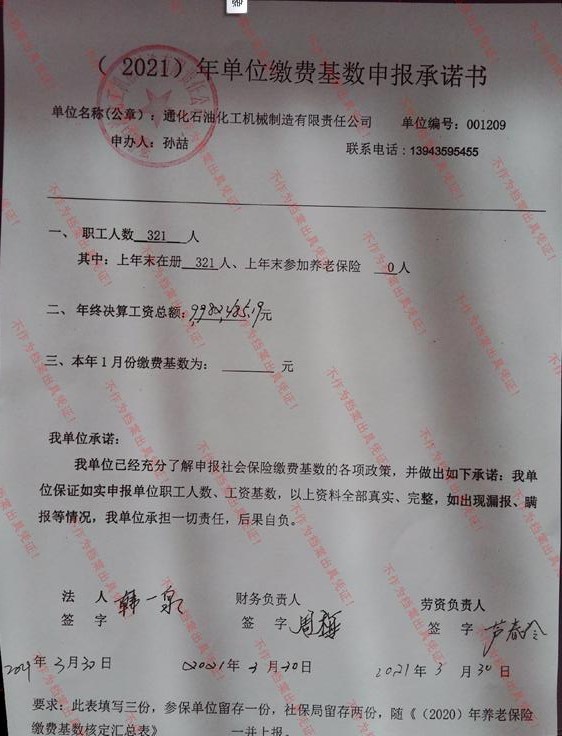 （2021）年单位缴费基数申报承诺书
单位名称(公章)：通化石油化工机械制造有限责任公司 单位编号：001209
申办人：孙喆 联系电话：13943595455
一、 职工人数 321 人
其中：上年末在册 321 人、上年末参加养老保险 0 人
二、年终决算工资总额：9,982,485.19元
三、本年1月份缴费基数为： 元
我单位承诺：
我单位已经充分了解申报社会保险缴费基数的各项政策，并做出如下承诺：我单
位保证如实申报单位职工人数、工资基数，以上资料全部真实、完整，如出现漏报、瞒
报等情况，我单位承担一切责任，后果自负。
法 人 韩一泉 财务负责人 劳资负责人
签 字 签 字 周 签 字 芦春玲
2021年3月30日 2021年3月30日 2021年3月30日
要求：此表填写三份，参保单位留存一份，社保局留存两份，随《（2020）年养老保险
缴费基数核定汇总表》 一并上报。
不作为档案出具凭证！